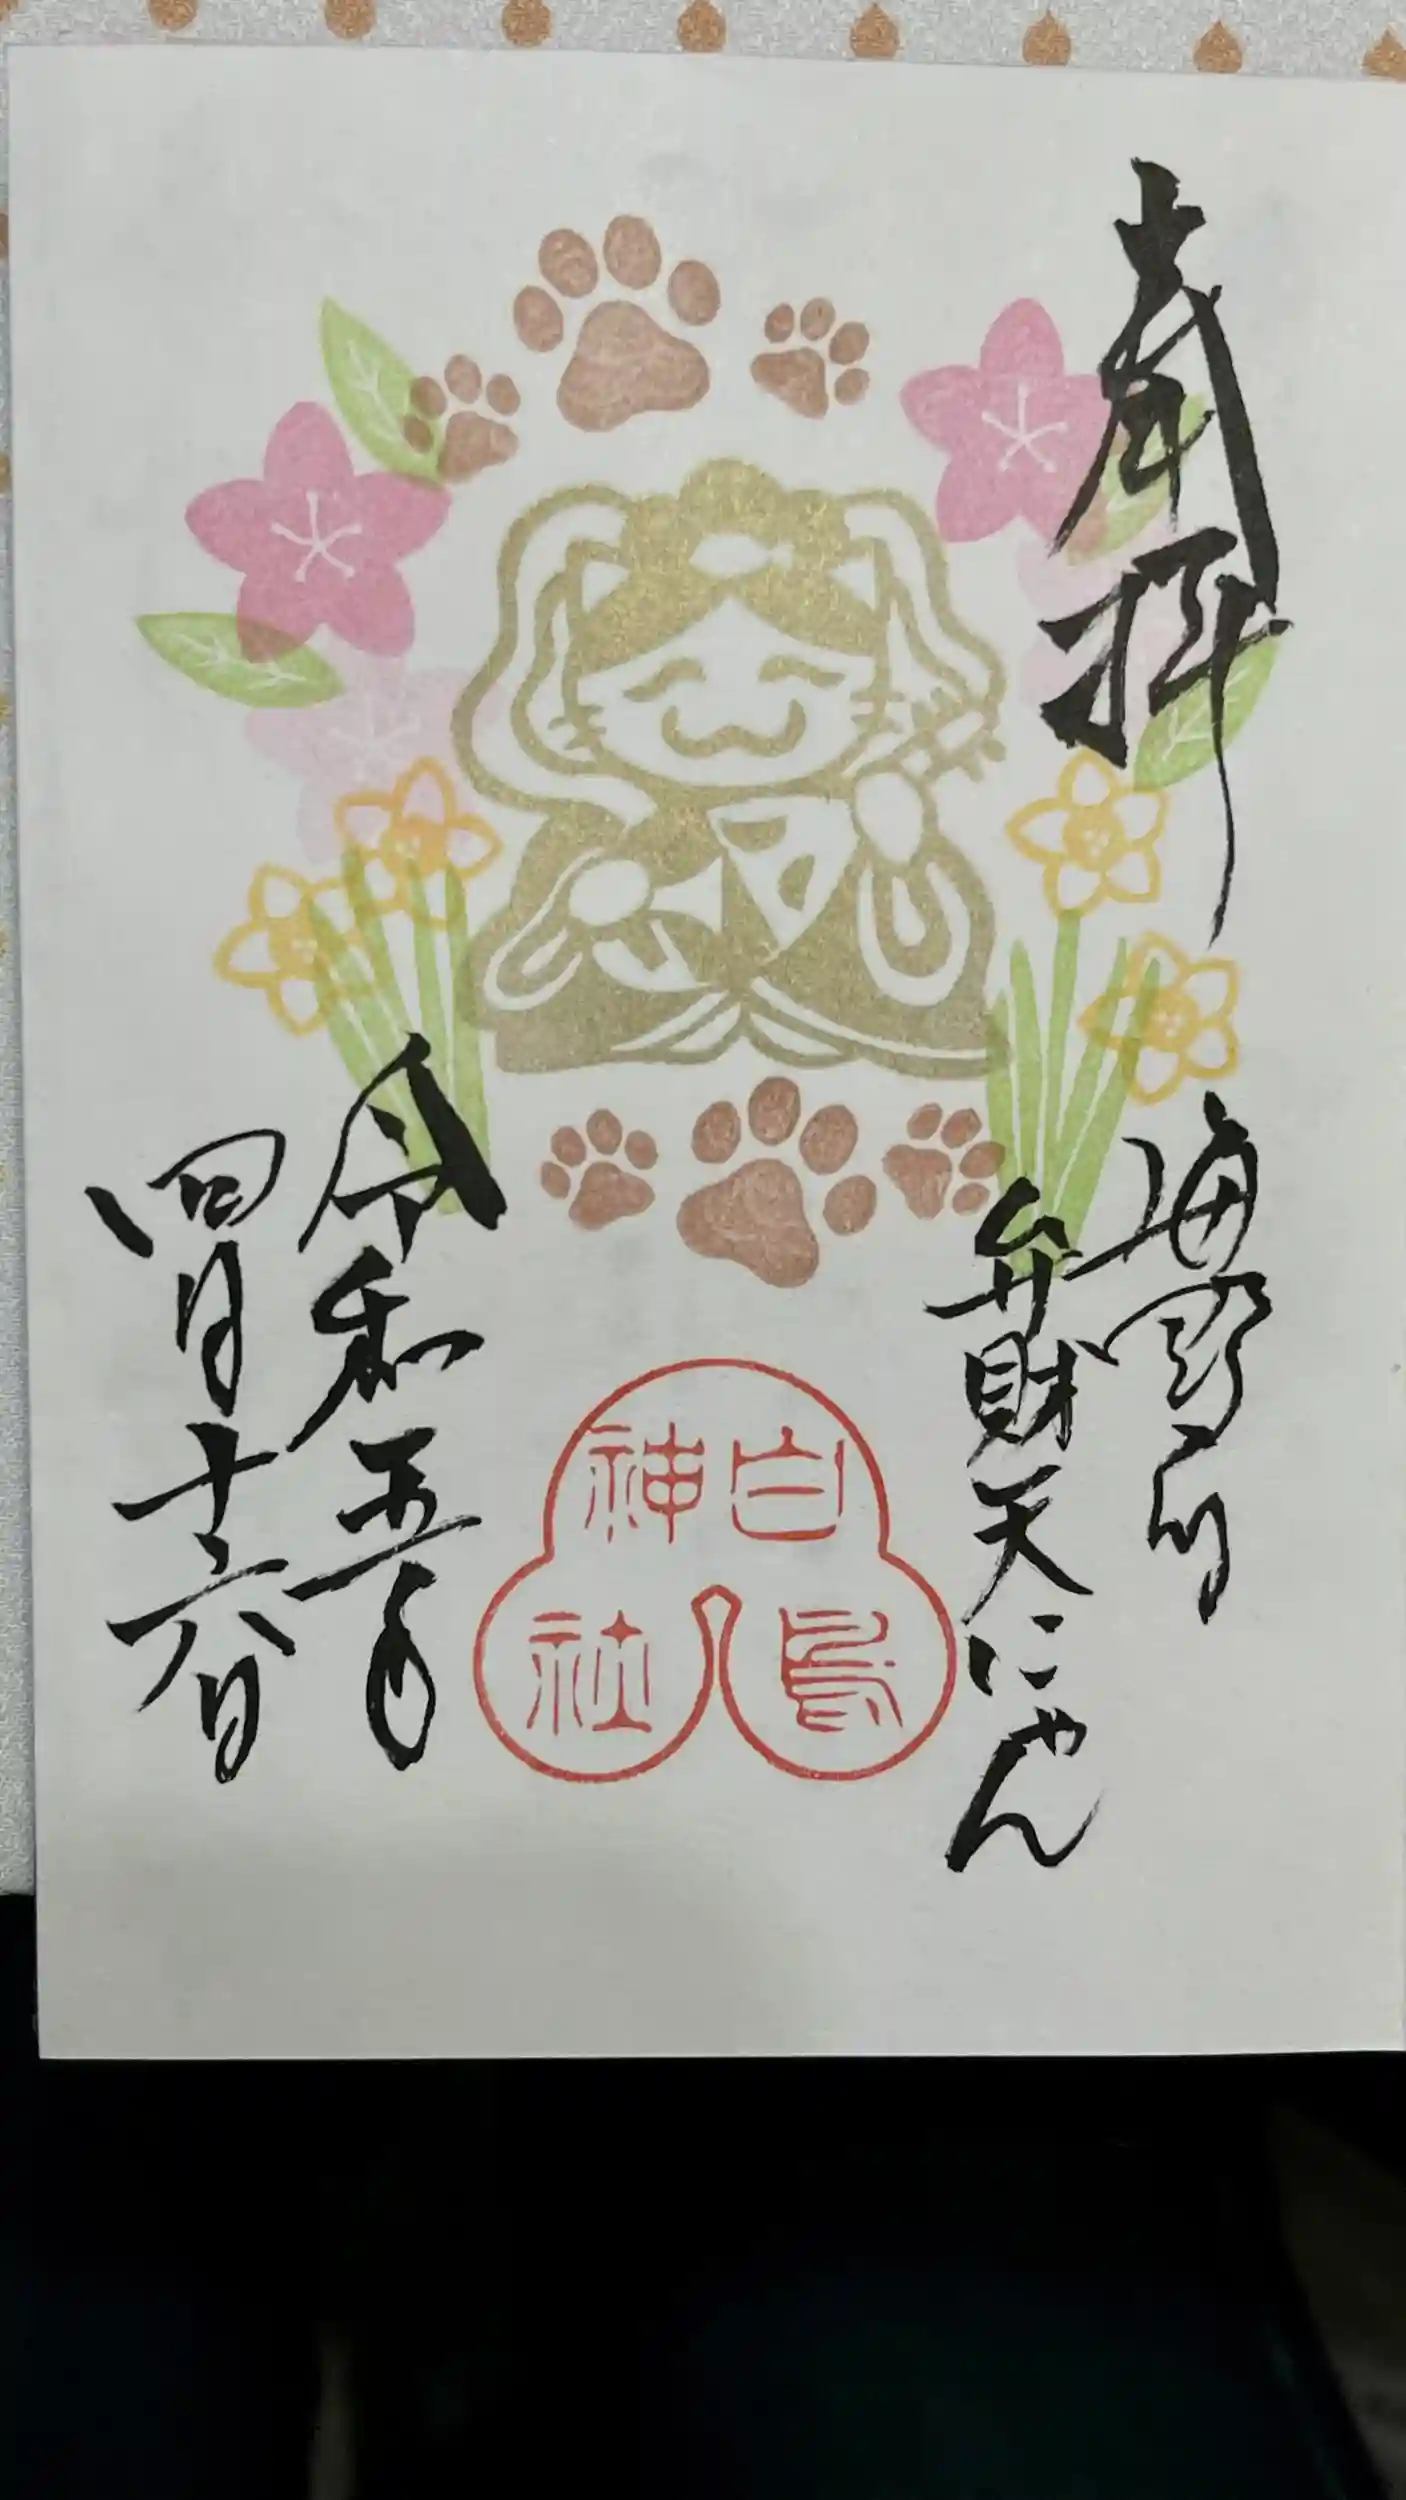 奉拝
海野宿
弁財天にゃん
白鳥
神社
令和五年
四月十六日